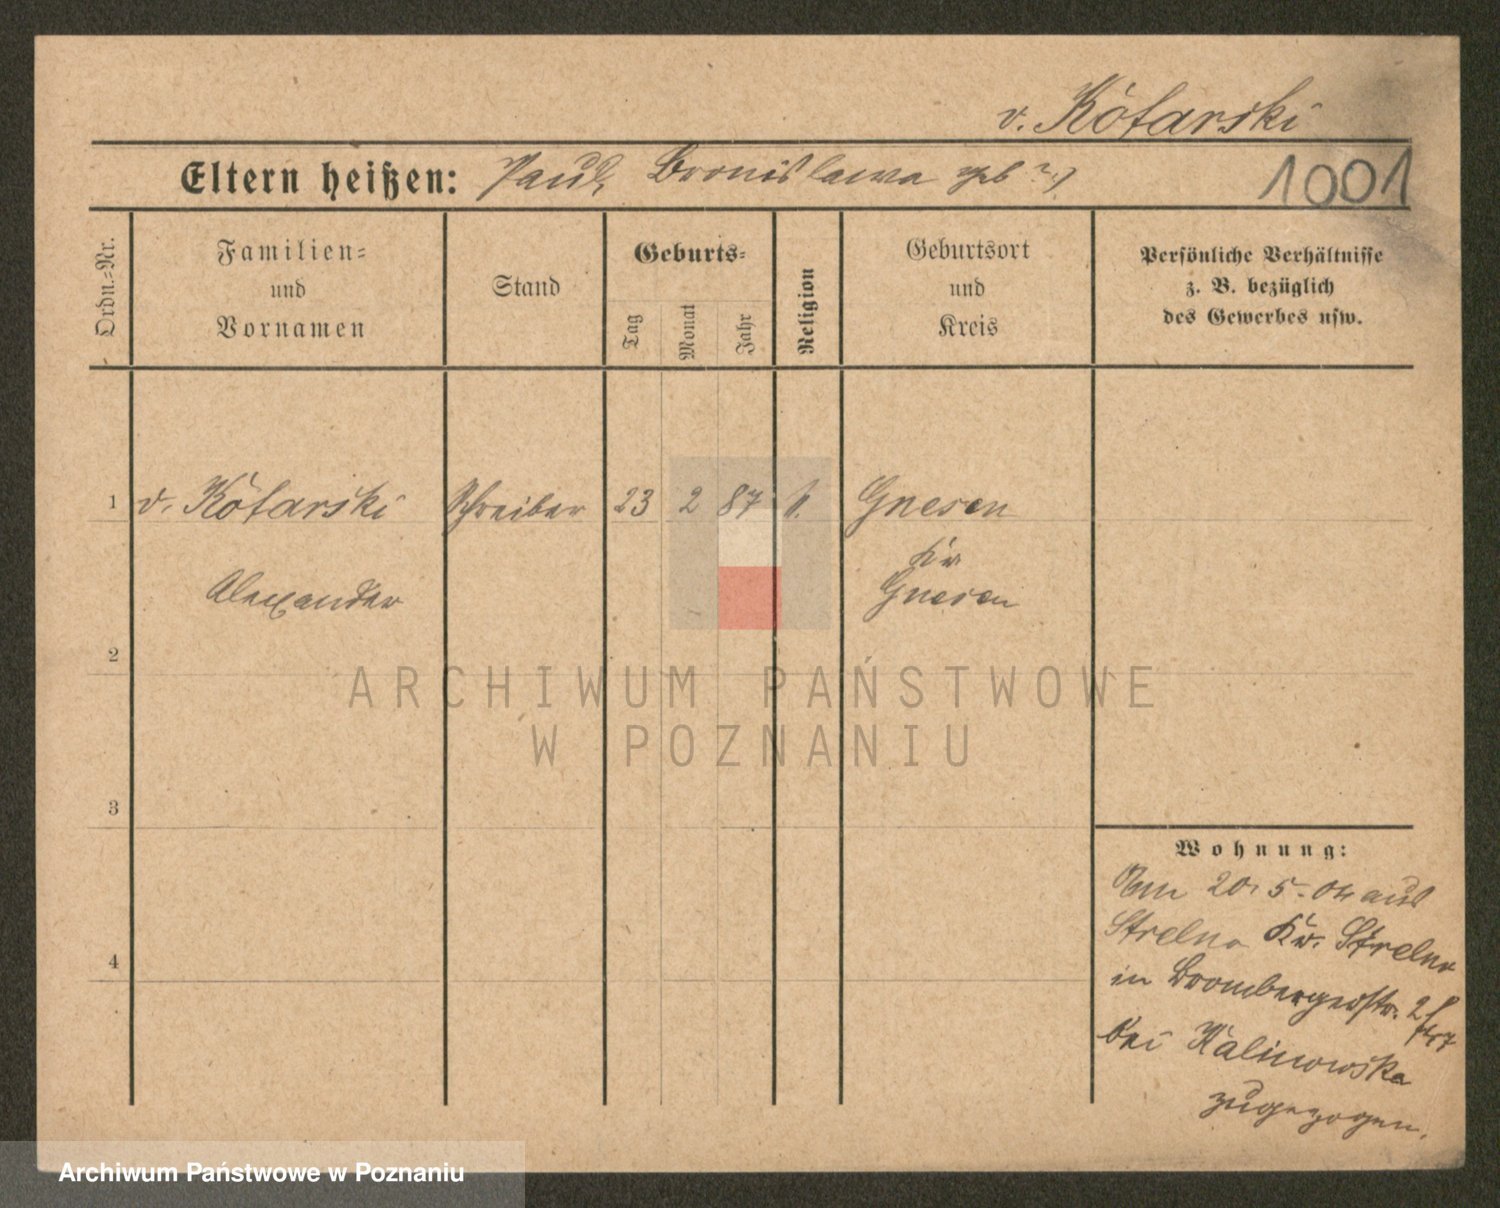 v. Kótarski
Eltern heißen: Paul, Bronislawa geb ?
1001
Ordn.=Nr.
Familien=
und
Vornamen
Stand
Geburts=
Tag
Monat
Jahr
Religion
Geburtsort
und
Kreis
Persönliche Verhältnisse
z. B. bezüglich
des Gewerbes usw.
1 v. Kótarski Schreiber 23 2 87 k. Gnesen
Kr.
Alexander Gnesen
2
3
4
Wohnung:
Am 20. 5. 04 aus
Strelno Kr. Strelno
in Brombergerstr. 2
bei Kalinowska
zugezogen.
ARCHIWUM PAŃSTWOWE
W POZNANIU
Archiwum Państwowe w Poznaniu